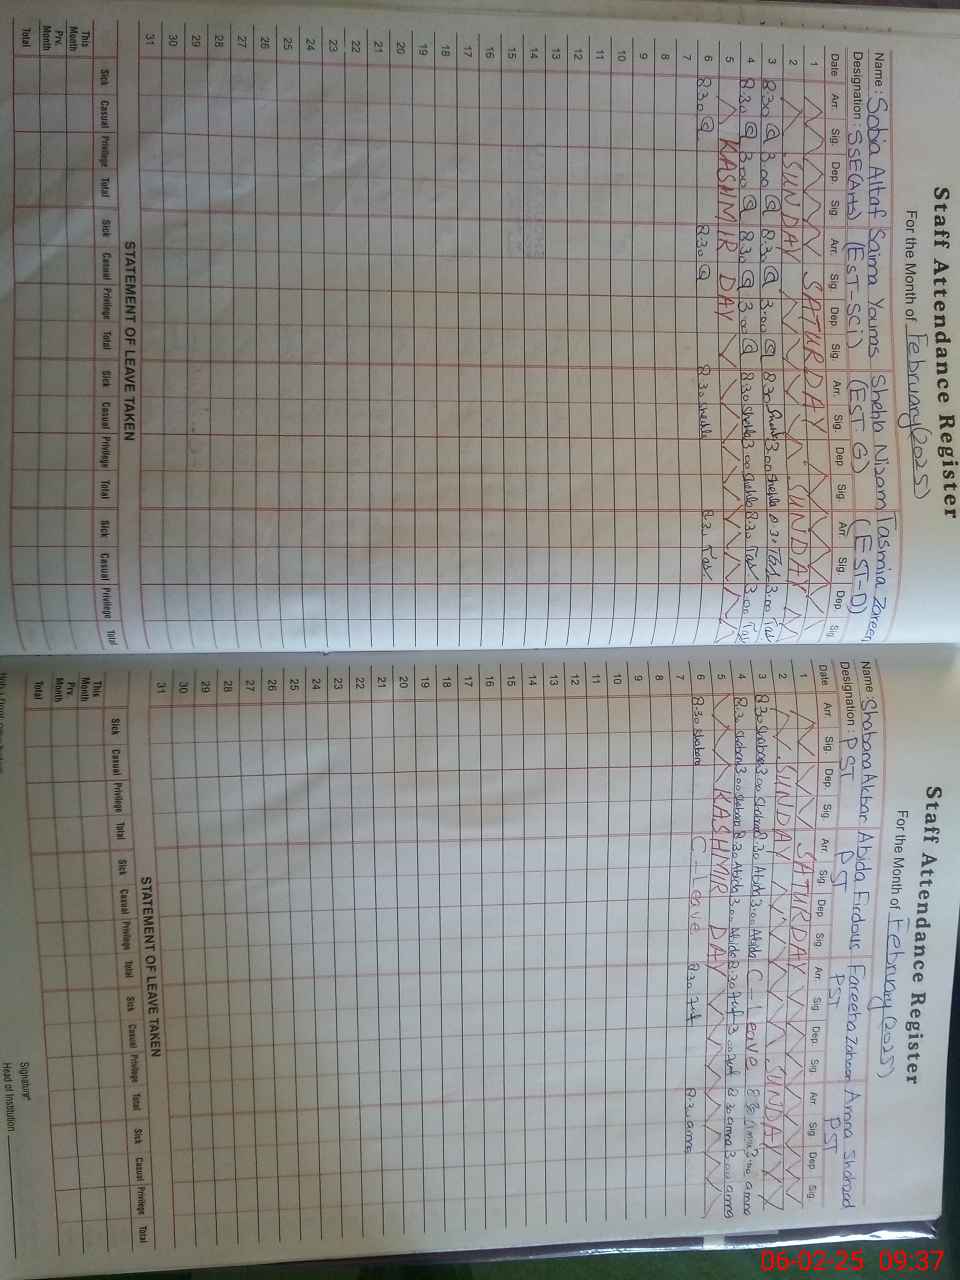 Staff Attendance Register
For the Month of February (2025)
Name : Sobia Altaf Saima Younas Shehla Nizam Tasmia Zareen
Designation : SSE(Arts) (EST-SCi) (EST-G) (EST-D)
Date Arr. Sig. Dep. Sig. Arr. Sig. Dep. Sig. Arr. Sig. Dep. Sig. Arr. Sig. Dep. Sig.
1 SATURDAY
2 SUNDAY SUNDAY
3 8:30 3:00 8:30 3:00 8:30 3:00 Shehla 8:30 Tas 3:00 Tas
4 8:30 3:00 8:30 3:00 8:30 Shehla 3:00 Shehla 8:30 Tas 3:00 Tas
5 KASHMIR DAY
6 8:30 8:30 8:30 Shehla 8:30 Tas
7
8
9
10
11
12
13
14
15
16
17
18
19
20
21
22
23
24
25
26
27
28
29
30
31
STATEMENT OF LEAVE TAKEN
Sick Casual Privilege Total Sick Casual Privilege Total Sick Casual Privilege Total Sick Casual Privilege Total
This Month
Prv. Month
Total
Staff Attendance Register
For the Month of February (2025)
Name : Shabana Akbar Abida Firdous Fareeha Zaheen Amna Shahzad
Designation : PST PST PST PST
Date Arr. Sig. Dep. Sig. Arr. Sig. Dep. Sig. Arr. Sig. Dep. Sig. Arr. Sig. Dep. Sig.
1 SATURDAY
2 SUNDAY SUNDAY
3 8:30 Shabana 3:00 Shabana 8:30 Abida 3:00 Abida C-leave 8:30 Amna 3:00 amna
4 8:30 Shabana 3:00 Shabana 8:30 Abida 3:00 Abida 8:30 3:00 8:30 amna 3:00 amna
5 KASHMIR DAY
6 8:30 Shabana C-Leave 8:30 8:30 amna
7
8
9
10
11
12
13
14
15
16
17
18
19
20
21
22
23
24
25
26
27
28
29
30
31
STATEMENT OF LEAVE TAKEN
Sick Casual Privilege Total Sick Casual Privilege Total Sick Casual Privilege Total Sick Casual Privilege Total
This Month
Prv. Month
Total
Signature
Head of Institution
06-02-25 09:37